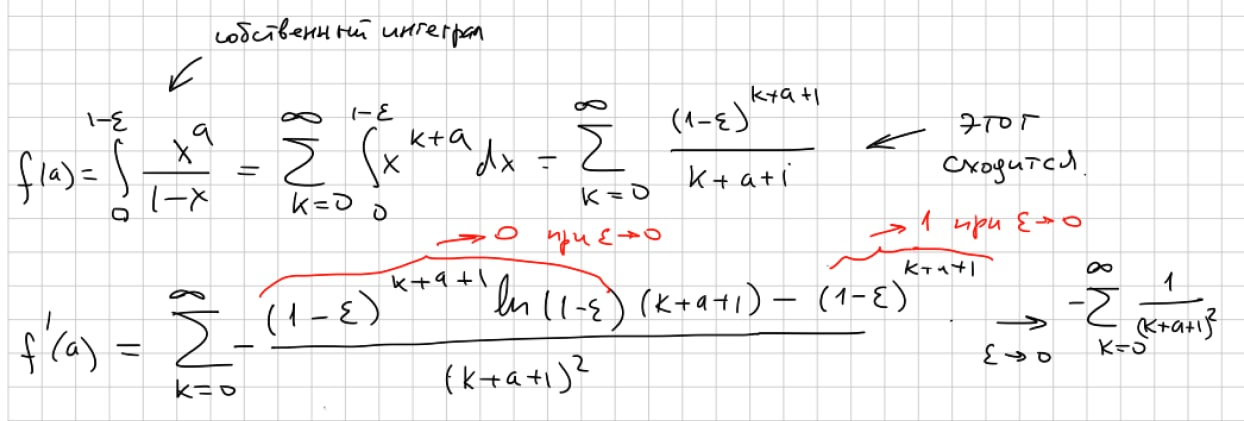 собственный интеграл
f(a) = ∫_0^{1-ε} x^a/(1-x) = ∑_{k=0}^∞ ∫_0^{1-ε} x^{k+a} dx = ∑_{k=0}^∞ (1-ε)^{k+a+1}/(k+a+1) ← этот сходится.
→ 0 при ε→0 → 1 при ε→0
f'(a) = ∑_{k=0}^∞ - ((1-ε)^{k+a+1} ln(1-ε)(k+a+1) - (1-ε)^{k+a+1})/(k+a+1)^2 →_{ε→0} -∑_{k=0}^∞ 1/(k+a+1)^2